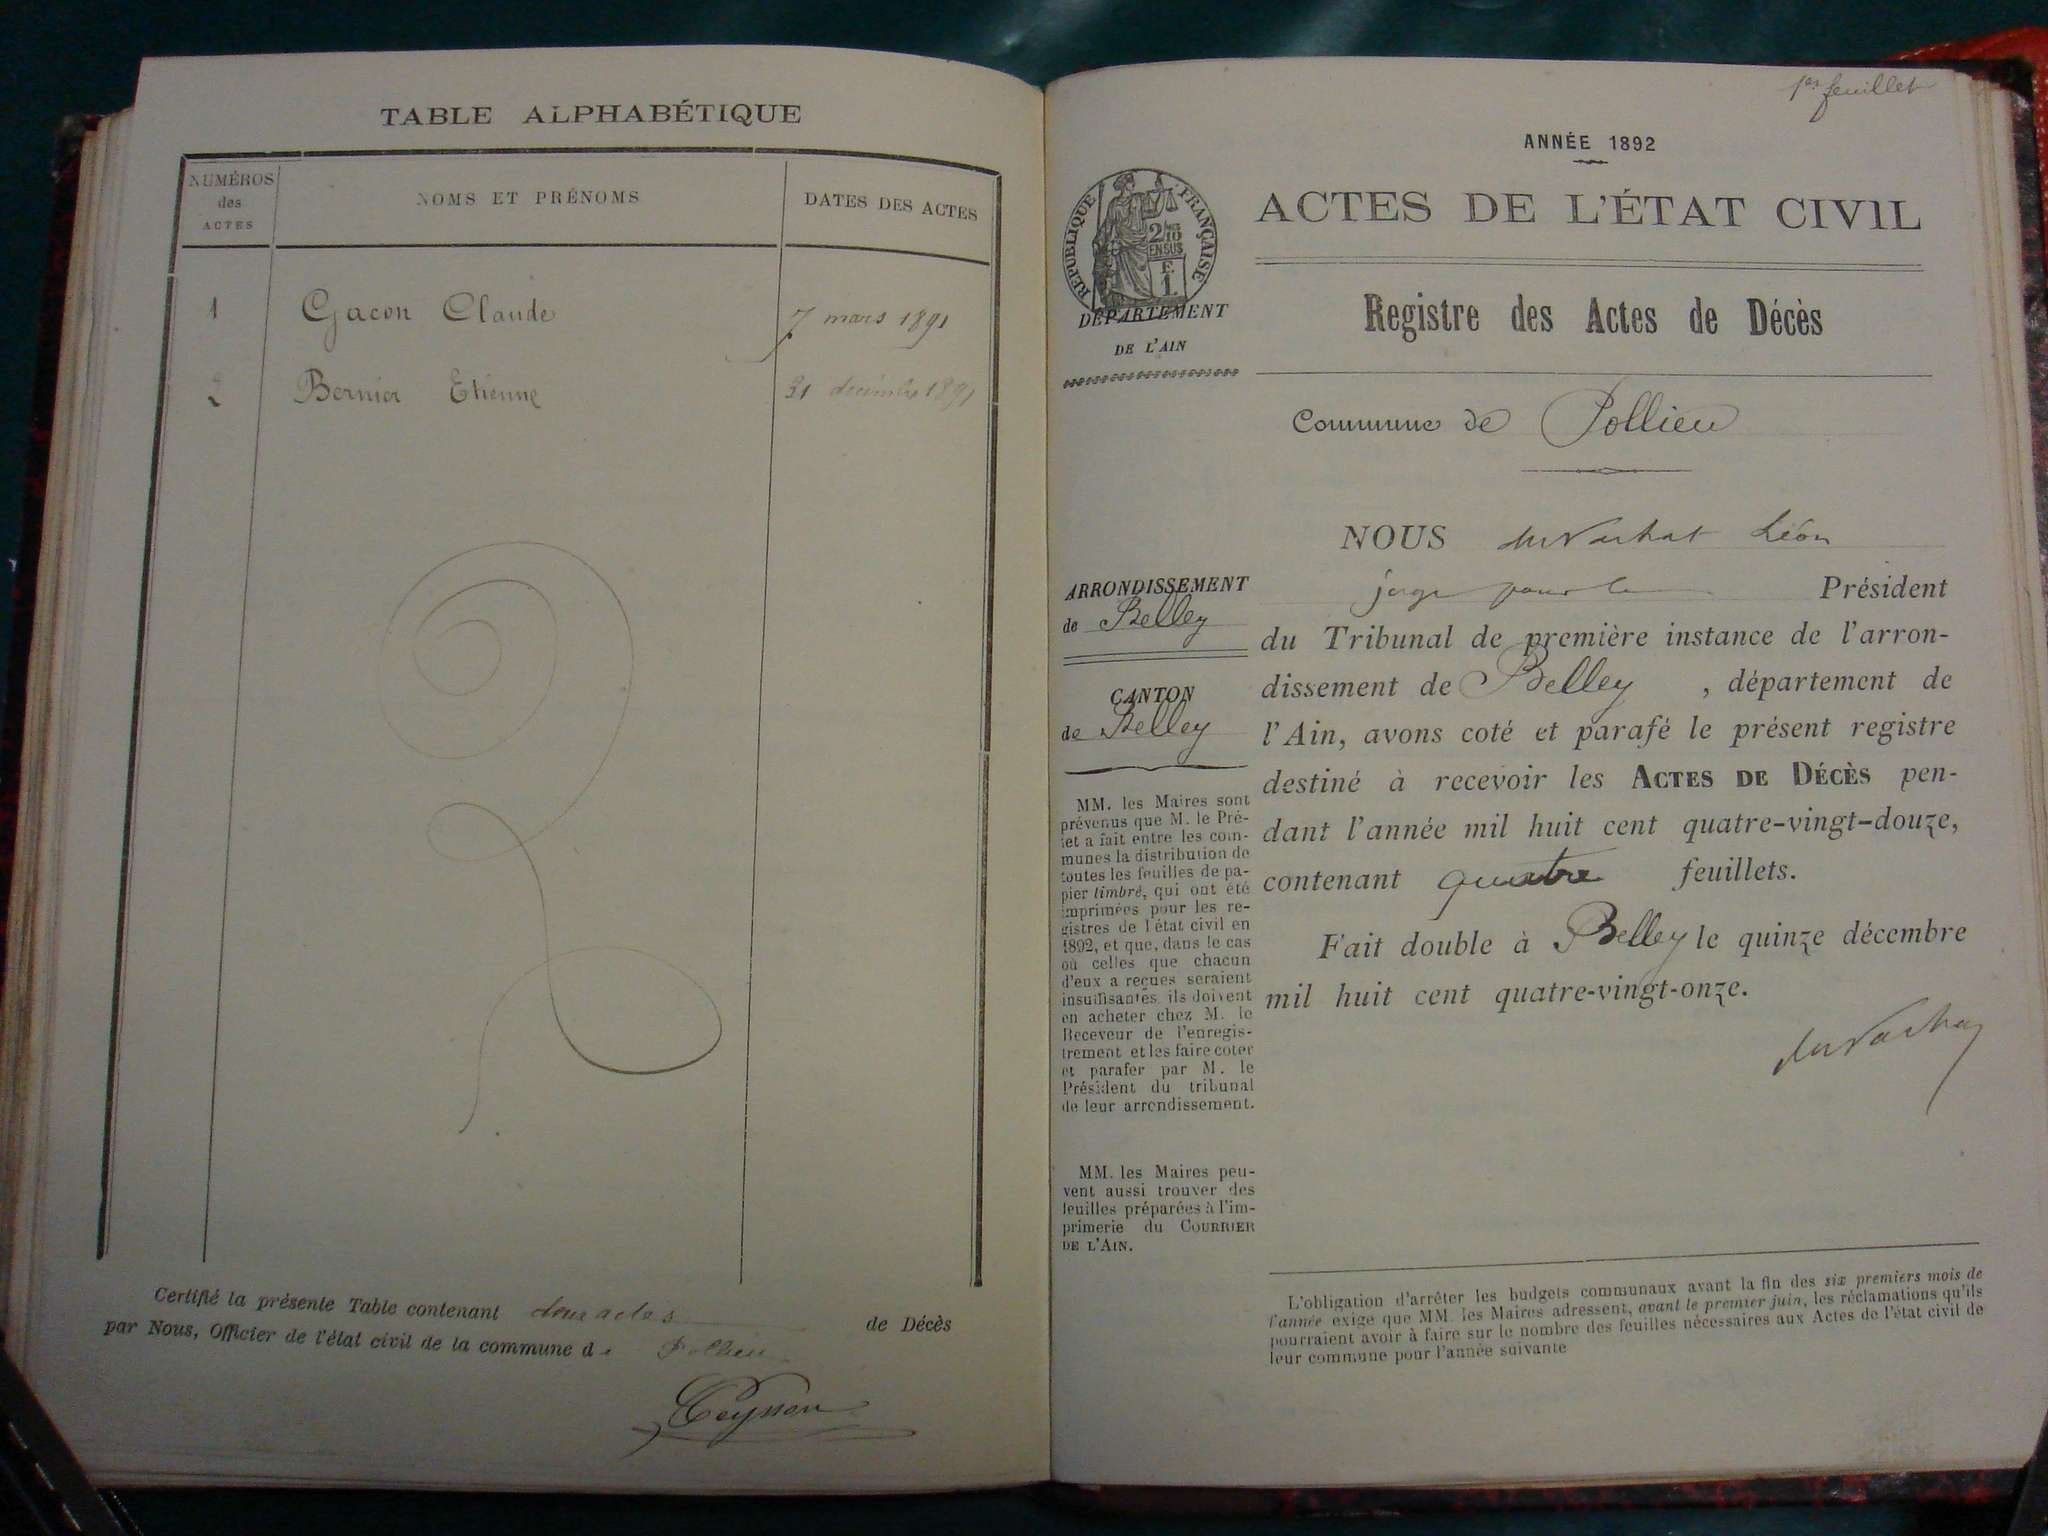 TABLE ALPHABÉTIQUE
NUMÉROS
des
ACTES
NOMS ET PRÉNOMS
DATES DES ACTES
1 Gacon Claude 7 mars 1891
2 Bernier Etienne 31 décembre 1891
Certifié la présente Table contenant deux actes de Décès
par Nous, Officier de l'état civil de la commune de Pollieu
1er feuillet
ANNÉE 1892
RÉPUBLIQUE FRANÇAISE
2/10
EN SUS
ACTES DE L'ÉTAT CIVIL
DÉPARTEMENT
DE L'AIN
Registre des Actes de Décès
Commune de Pollieu
ARRONDISSEMENT
de Belley
CANTON
de Belley
MM. les Maires sont
prévenus que M. le Pré-
fet a fait entre les com-
munes la distribution de
toutes les feuilles de pa-
pier timbré, qui ont été
imprimées pour les re-
gistres de l'état civil en
1892, et que, dans le cas
où celles que chacun
d'eux a reçues seraient
insuffisantes, ils doivent
en acheter chez M. le
Receveur de l'enregis-
trement et les faire coter
et parafer par M. le
Président du tribunal
de leur arrondissement.
MM. les Maires peu-
vent aussi trouver des
feuilles préparées à l'im-
primerie du COURRIER
DE L'AIN.
NOUS Léon
juge pour le Président
du Tribunal de première instance de l'arron-
dissement de Belley, département de
l'Ain, avons coté et parafé le présent registre
destiné à recevoir les ACTES DE DÉCÈS pen-
dant l'année mil huit cent quatre-vingt-douze,
contenant quatre feuillets.
Fait double à Belley le quinze décembre
mil huit cent quatre-vingt-onze.
L'obligation d'arrêter les budgets communaux avant la fin des six premiers mois de
l'année exige que MM. les Maires adressent, avant le premier juin, les réclamations qu'ils
pourraient avoir à faire sur le nombre des feuilles nécessaires aux Actes de l'état civil de
leur commune pour l'année suivante